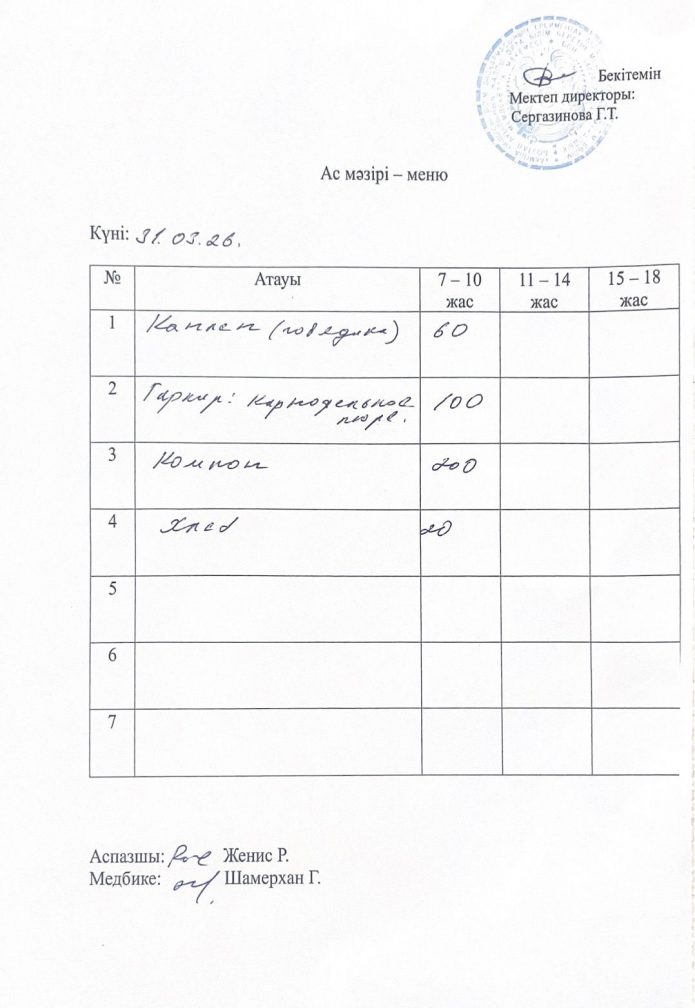 Бекітемін
Мектеп директоры:
Сергазинова Г.Т.
Ас мәзірі – меню
Күні: 31.03.26.
№ Атауы 7 – 10 жас 11 – 14 жас 15 – 18 жас
1 Катлет (говядина) 60
2 Гарнир: Картофельное 100
пюре.
3 Компот 200
4 Хлеб 20
5
6
7
Аспазшы: Женис Р.
Медбике: Шамерхан Г.